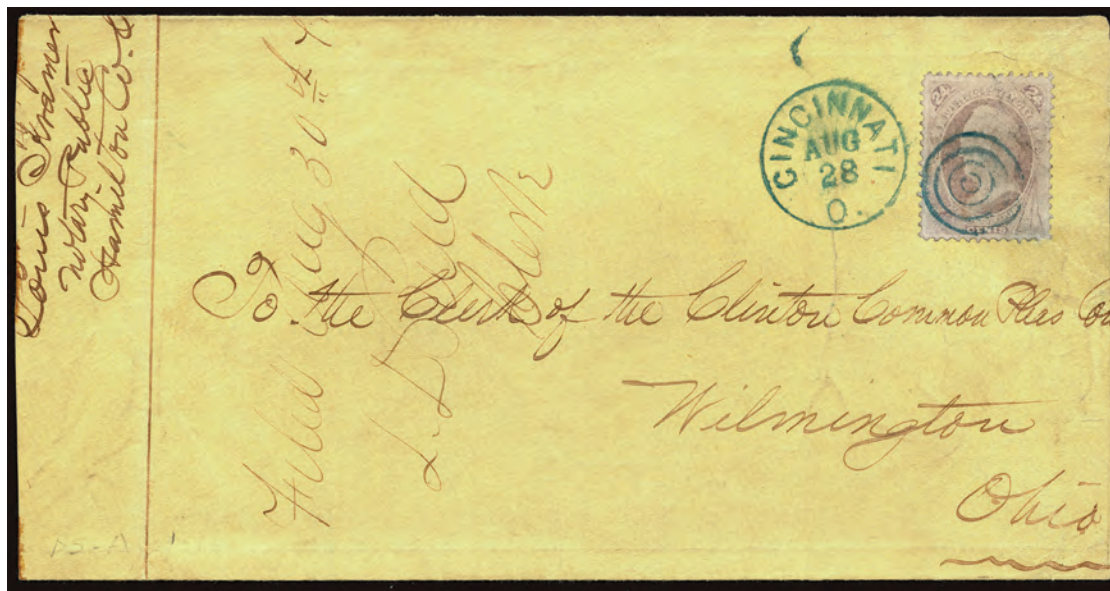 Louis Kramer
Notary Public
Hamilton Co. O
Filed Aug 30th 7
L. D.
Clerk
CINCINNATI
AUG
28
O.
24 24
CENTS
To the Clerk of the Clinton Common Pleas Cou
Wilmington
Ohio